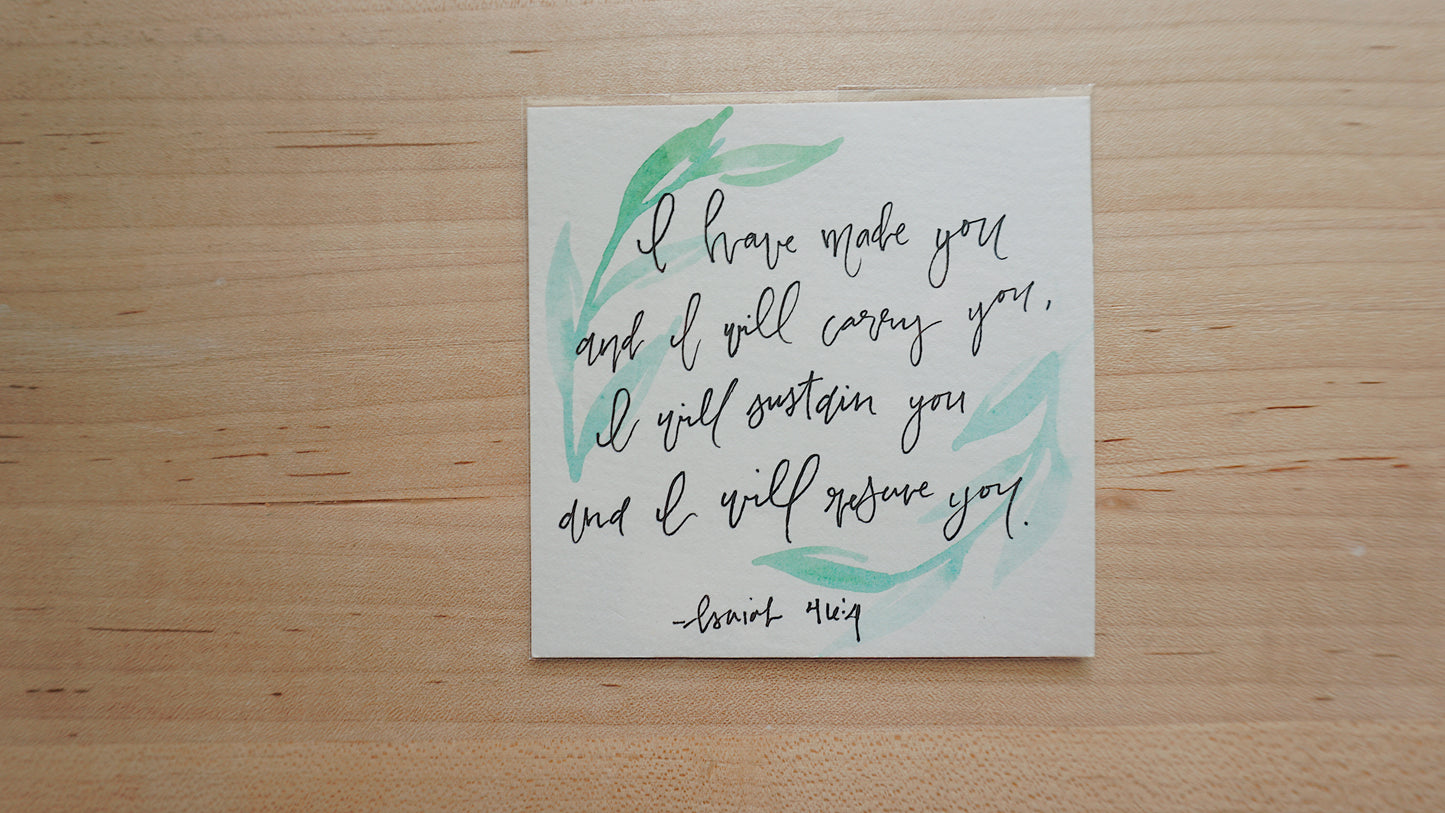 I have made you
and I will carry you,
I will sustain you
and I will rescue you.
-Isaiah 46:4